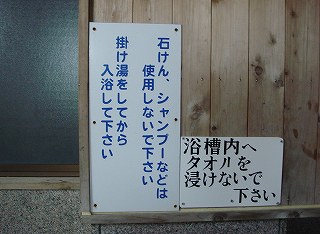 石けん、シャンプーなどは
使用しないで下さい
掛け湯をしてから
入浴して下さい
浴槽内へ
タオルを
浸けないで
下さい